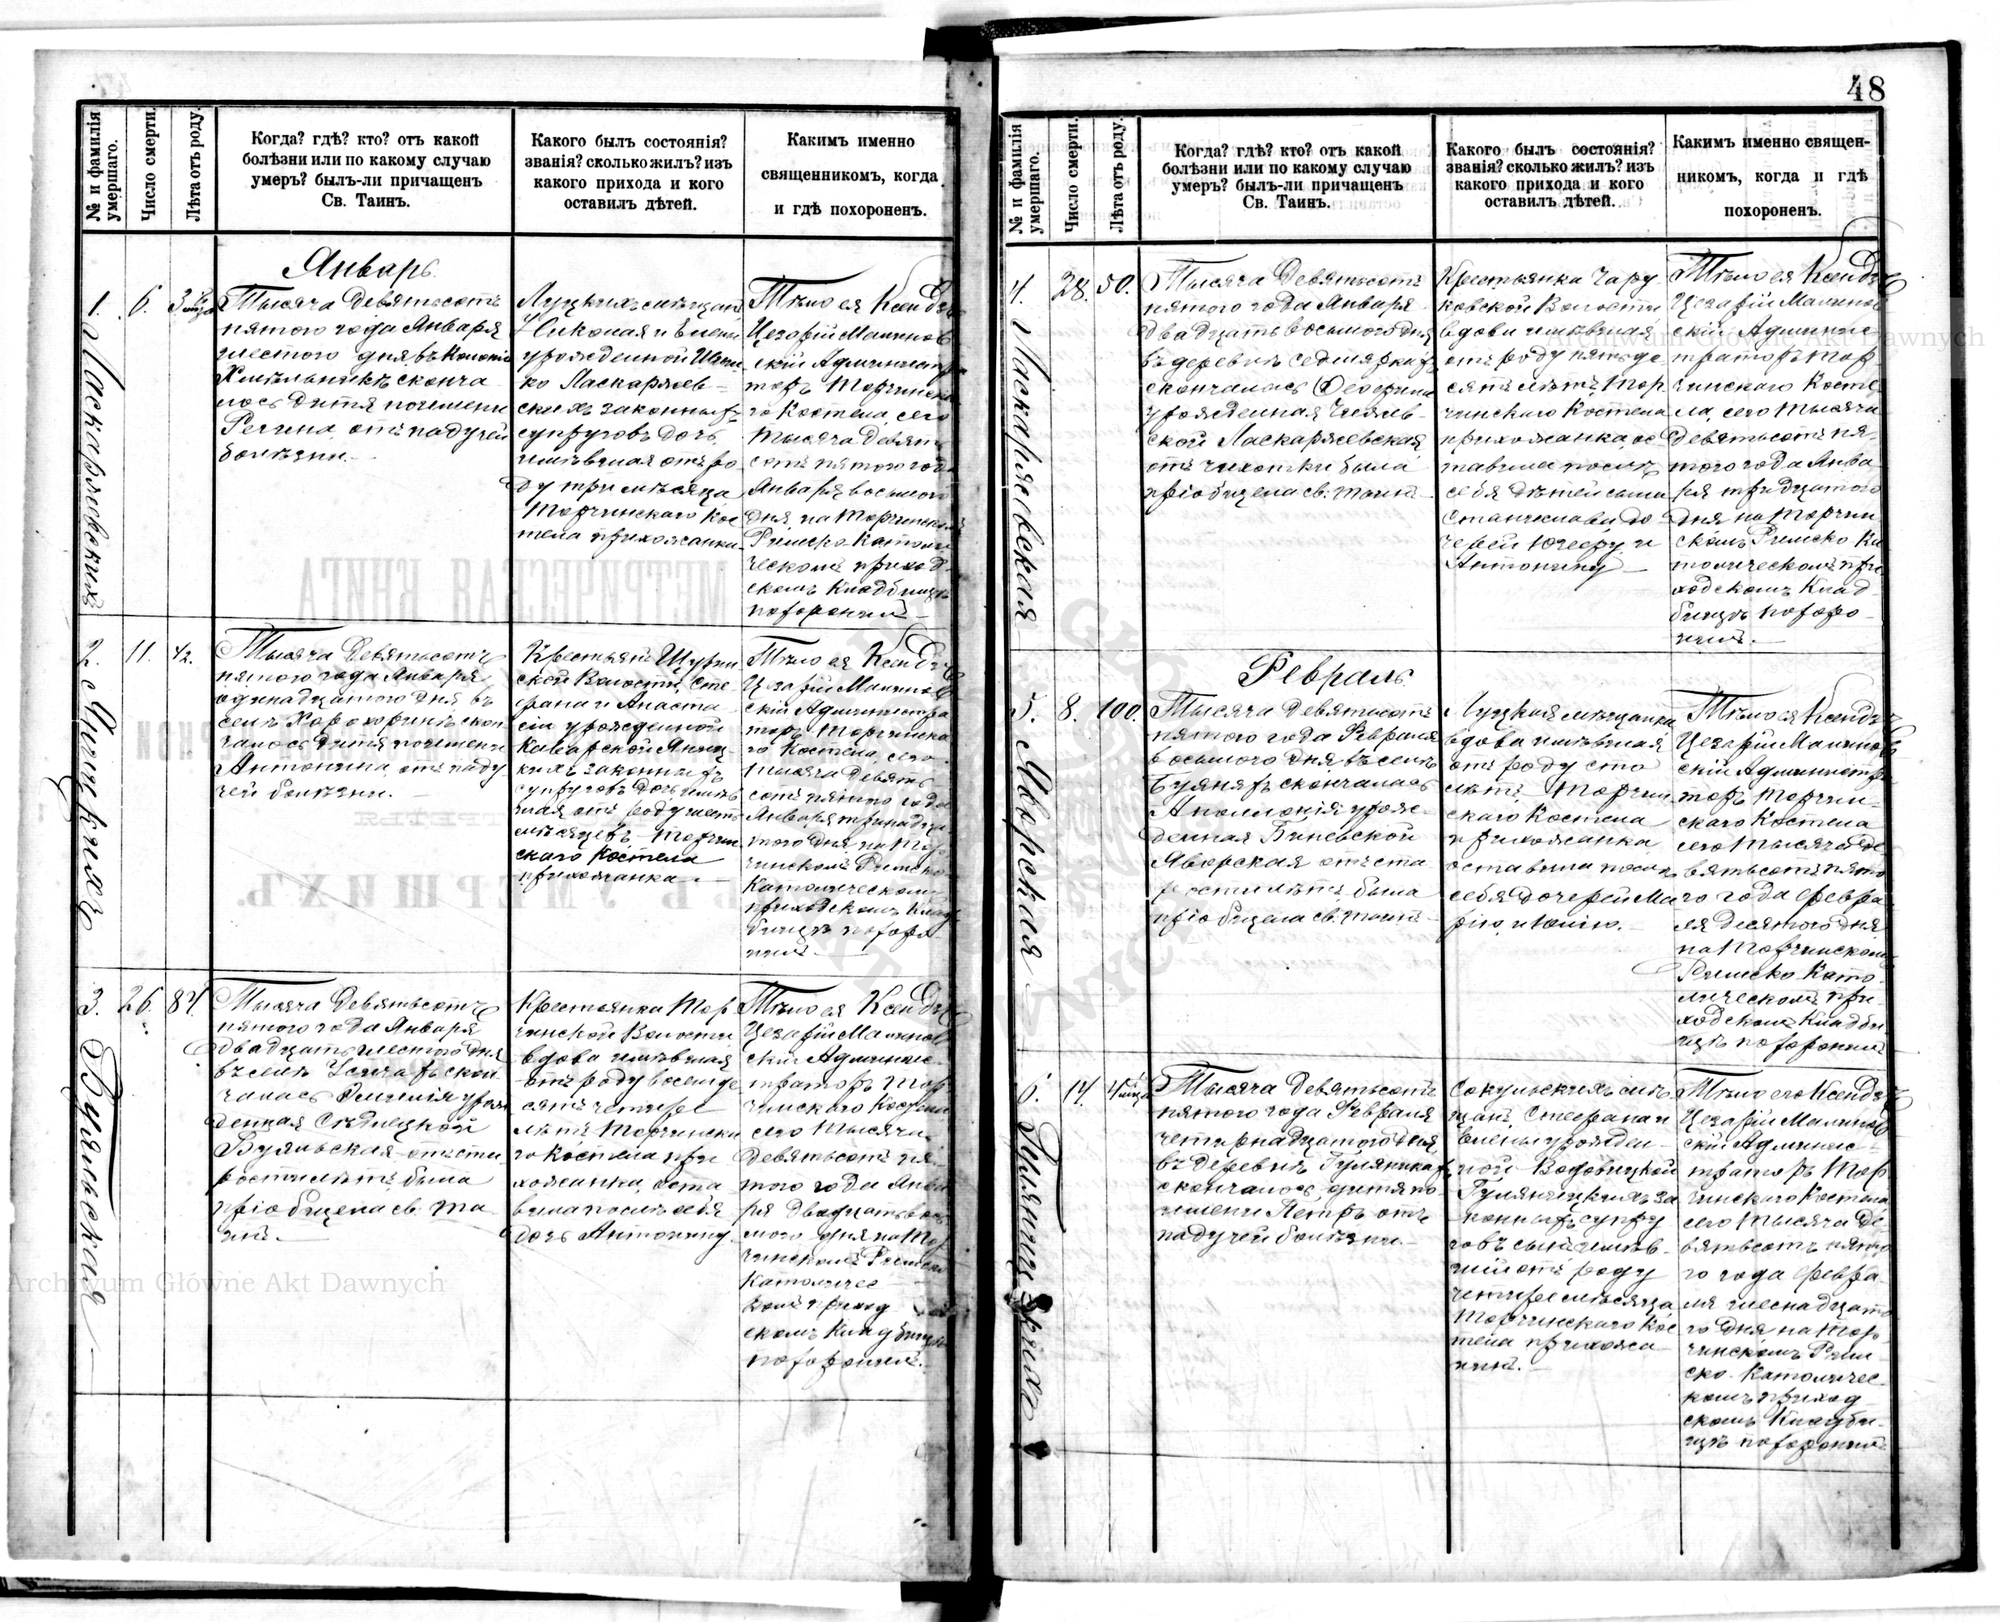 48
№ и фамилія
умершаго.
Число смерти.
Лѣта отъ роду.
Когда? гдѣ? кто? отъ какой
болѣзни или по какому случаю
умеръ? былъ-ли причащенъ
Св. Таинъ.
Какого былъ состоянія?
званія? сколько жилъ? изъ
какого прихода и кого
оставилъ дѣтей.
Какимъ именно
священникомъ, когда
и гдѣ похороненъ.
Январь
1.
6.
Тысяча Девятьсотъ
пятого года Января
шестого дня въ
сконча
лось дитя по имени
Регина, отъ падучей
болѣзни.
Луцкихъ мѣщанъ
Николая и
урожденной
ко Ласкаржев
скихъ законныхъ
супруговъ дочь,
имѣвшая отъ ро
ду три мѣсяца
Торчинскаго Кос
тела прихожанка.
Тѣло ея Ксендзъ
Цезарій Малинов
скій Администра
торъ Торчинска
го Костела, сего
тысяча девять
сотъ пятого года
Января восьмого
дня, на Торчинскомъ
Римско Католи
ческомъ приход
скомъ Кладбищѣ
похоронилъ
2.
11.
42.
Тысяча Девятьсотъ
пятого года Января
одинадцатого дня въ
селѣ скон
чалось дитя по имени
Антонина, отъ паду
чей болѣзни.
Крестьянъ
ской Волости, Сте
фана и Анаста
сіи урожденной
кихъ законныхъ
супруговъ дочь имѣв
шая отъ роду шесть
мѣсяцевъ Торчин
скаго Костела
прихожанка
Тѣло ея Ксендзъ
Цезарій Малинов
скій Администра
торъ Торчинска
го Костела, сего
тысяча девять
сотъ пятого года
Января тринадца
того дня, на Тор
чинскомъ Римско
Католическомъ
приходскомъ Клад
бищѣ похоро
нилъ.
3.
26.
84.
Тысяча Девятьсотъ
пятого года Января
двадцать шестого дня
въ селѣ скон
чалась урож
денная
отъ ста
рости лѣтъ, была
пріобщена св. Та
инъ.
Крестьянка Тор
чинской Волости
вдова имѣвшая
отъ роду восемьде
сятъ четыре
лѣтъ Торчинска
го Костела при
хожанка, оста
вила послѣ себя
дочь Антонину.
Тѣло ея Ксендзъ
Цезарій Малинов
скій Админис
траторъ Тор
чинскаго Костела
сего тысяча
девятьсотъ пя
того года Янва
ря двадцать вось
мого дня на Тор
чинскомъ Римско
Католичес
комъ приход
скомъ Кладбищѣ
похоронилъ.
№ и фамилія
умершаго.
Число смерти.
Лѣта отъ роду.
Когда? гдѣ? кто? отъ какой
болѣзни или по какому случаю
умеръ? былъ-ли причащенъ
Св. Таинъ.
Какого былъ состоянія?
званія? сколько жилъ? изъ
какого прихода и кого
оставилъ дѣтей.
Какимъ именно священ-
никомъ, когда и гдѣ
похороненъ.
4. Ласкаржевская
28.
50.
Тысяча Девятьсотъ
пятого года Января
двадцать восьмого дня
въ деревнѣ
скончалась
урожденная
ской Ласкаржевская
отъ чихотки была
пріобщена св. таинъ
Крестьянка Чару
ковской Волости
вдова имѣвшая
отъ роду пятьде
сятъ лѣтъ, Тор
чинскаго Костела
прихожанка, ос
тавила послѣ
себя дѣтей сына
Станислава, до
черей Юзефу и
Антонину
Тѣло ея Ксендзъ
Цезарій Малинов
скій Админис
траторъ Тор
чинскаго Косте
ла, сего тысяча
девятьсотъ пя
того года Янва
ря тридцатого
дня на Торчин
скомъ Римско Ка
толическомъ при
ходскомъ Клад
бищѣ похоро
нилъ.
Февраль
5. Яворская
8.
100.
Тысяча Девятьсотъ
пятого года Февраля
восьмого дня въ селѣ
Буяняхъ скончалась
Аполлонія урож
денная
Яворская отъ ста
рости лѣтъ, была
пріобщена св. таинъ
Луцкая мѣщанка,
вдова имѣвшая
отъ роду сто
лѣтъ, Торчин
скаго Костела
прихожанка
оставила послѣ
себя дочерей Ма
рію, и Юлію.
Тѣло ея Ксендзъ
Цезарій Малинов
скій Администра
торъ Торчин
скаго Костела
сего тысяча де
вятьсотъ пято
го года Февра
ля десятого дня
на Торчинскомъ
Римско Като
лическомъ при
ходскомъ Кладби
щѣ похоронилъ
6.
14.
Тысяча Девятьсотъ
пятого года Февраля
четырнадцатого дня
въ деревнѣ
скончалось дитя по
имени Петръ отъ
падучей болѣзни.
Сокульскихъ мѣ
щанъ, Стефана и
Елены урожден
ной
за
конныхъ супру
говъ сынъ имѣв
шій отъ роду
четыре мѣсяца,
Торчинскаго Кос
тела прихожа
нинъ.
Тѣло его Ксендзъ
Цезарій Малинов
скій Админис
траторъ Тор
чинскаго Костела
сего тысяча де
вятьсотъ пято
го года Февра
ля шеснадцато
го дня на Тор
чинскомъ Рим
ско Католичес
комъ приход
скомъ Кладби
щѣ похоронилъ
Archiwum Główne Akt Dawnych
Archiwum Główne Akt Dawnych